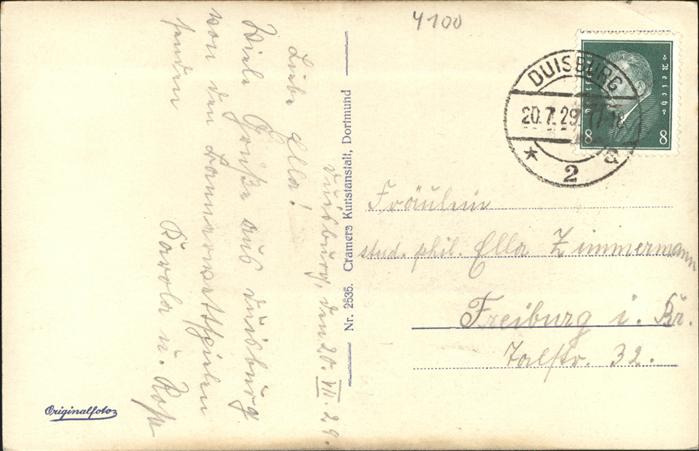 4100
DUISBURG
20.7.29. 17-18
* 2
8 8
Duisburg, den 20. VII. 29.
Liebe Ella!
Viele Grüße aus Duisburg
von den
senden
Karola u.
Nr. 2535. Cramers Kunstanstalt, Dortmund
Fräulein
stud. phil. Ella Zimmermann
Freiburg i. Br.
Talstr. 32.
Originalfoto